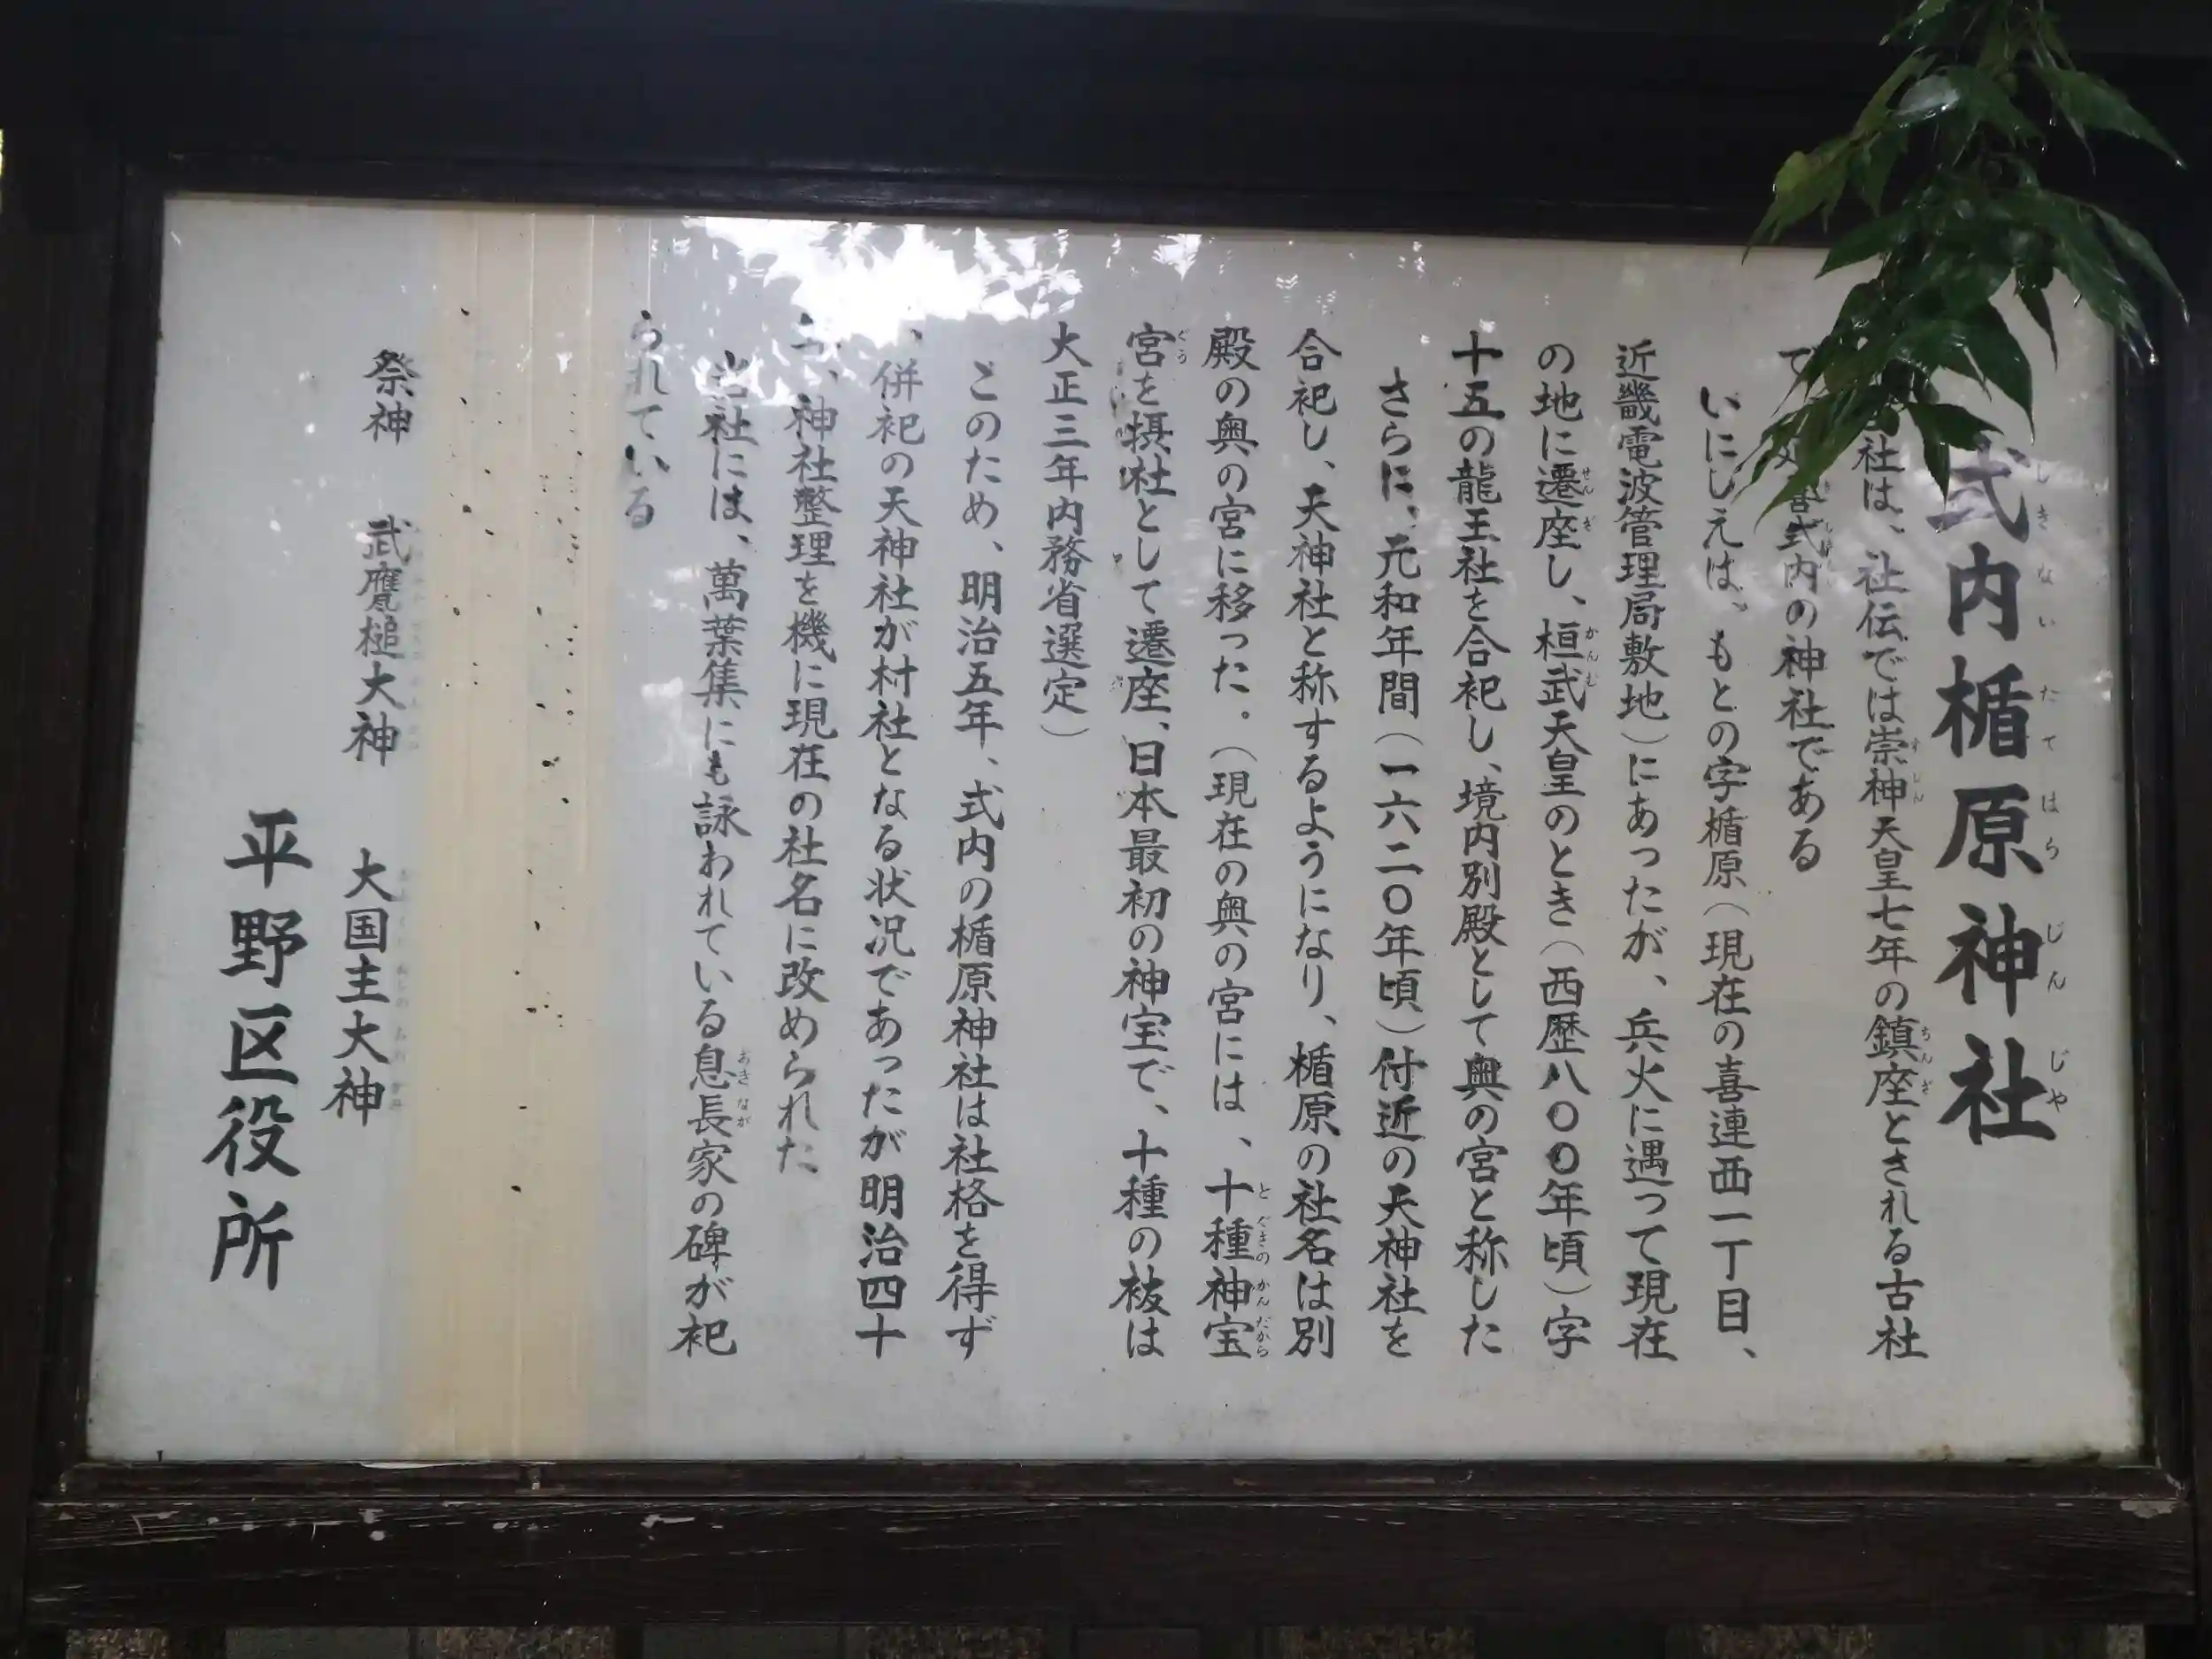 式内楯原神社
社は、社伝では崇神天皇七年の鎮座とされる古社
で 喜式内の神社である
いにしえは、もとの字楯原（現在の喜連西一丁目、
近畿電波管理局敷地）にあったが、兵火に遇って現在
の地に遷座し、桓武天皇のとき（西歴八〇〇年頃）字
十五の龍王社を合祀し、境内別殿として奥の宮と称した
さらに、元和年間（一六二〇年頃）付近の天神社を
合祀し、天神社と称するようになり、楯原の社名は別
殿の奥の宮に移った。（現在の奥の宮には、十種神宝
宮を摂社として遷座、日本最初の神宝で、十種の祓は
大正三年内務省選定）
このため、明治五年、式内の楯原神社は社格を得ず
、併祀の天神社が村社となる状況であったが明治四十
、神社整理を機に現在の社名に改められた
当社には、萬葉集にも詠われている息長家の碑が祀
られている
祭神 武甕槌大神 大国主大神
平野区役所